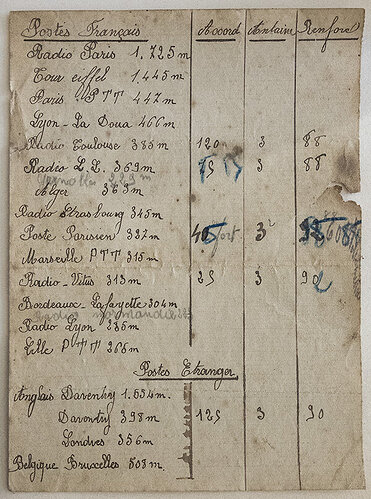 Postes Français Accord Antaine Renford
Radio Paris 1.725m
Tour eiffel 1.445m
Paris - PTT 447m
Lyon-La Doua 466m
Radio Toulouse 385m 120 3 88
Radio L.L. 369m 75 3 88
329m
Alger 363m
Radio Strasbourg 345m
Poste Parisien 337m fort 3
Marseille PTT 315m
Radio-Vitus 313m 25 3 90
Bordeaux-Lafayette 304m
Radio normandie
Radio Lyon 285m
Lille PTT 266m
Postes Etranger
Anglais Daventry 1.554m.
Daventry 398m 125 3 90
Londres 356m
Belgique Bruxelles 508m.